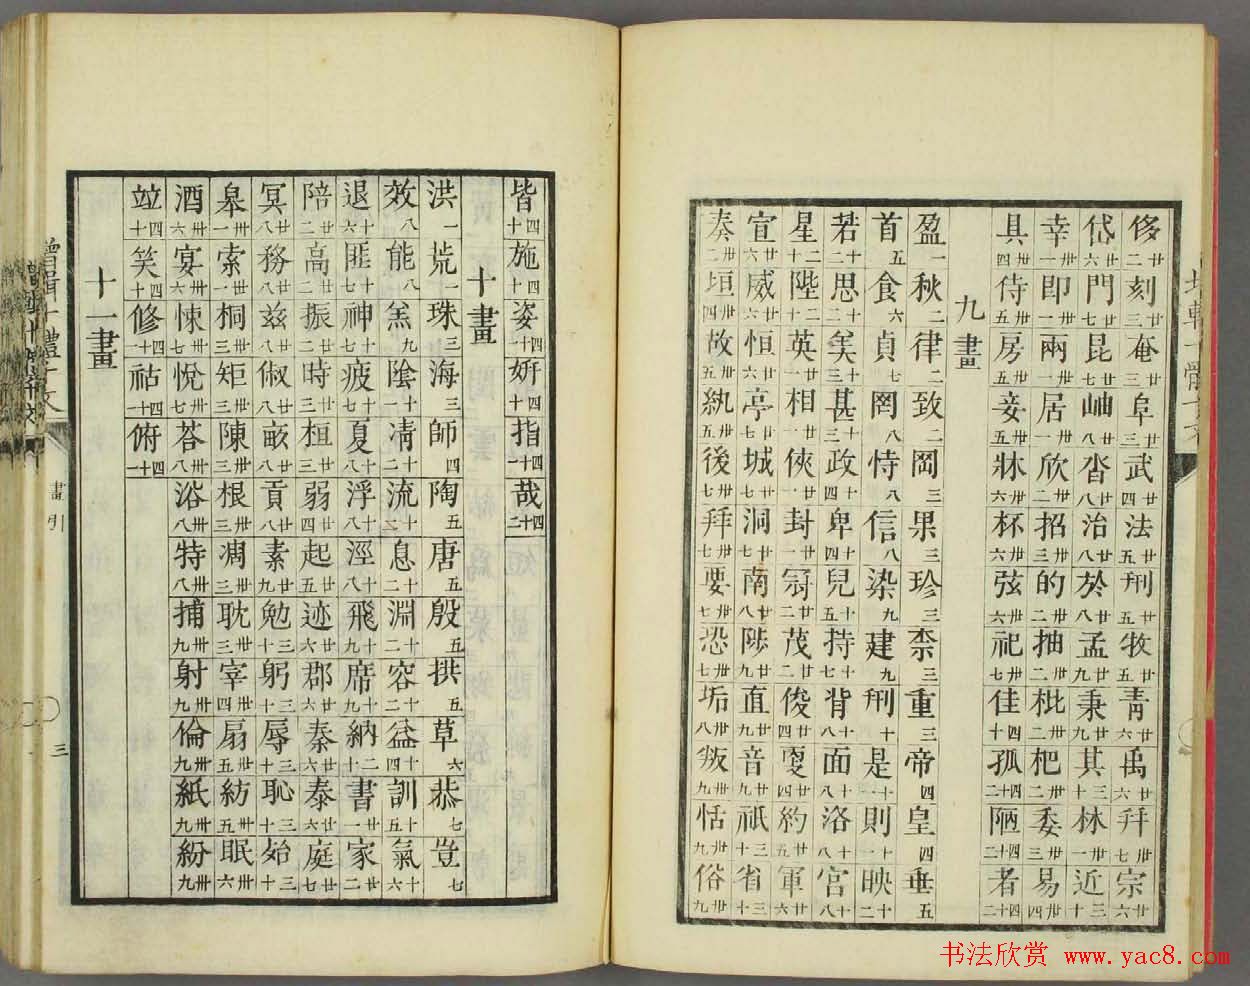 侈廿二 刻廿三 奄廿三 阜廿三 武廿四 法廿五 刑廿五 牧廿五 靑廿六 禹廿六 幷廿七 宗廿六
岱廿六 門廿六 昆廿七 岫廿七 沓廿八 治廿八 於廿八 孟廿九 秉廿九 其三十 林三十 近三十
幸卅 即卅一 兩卅一 居卅一 欣卅二 招卅三 的卅二 抽卅二 枇卅二 杷卅二 委卅三 易卅四
具卅四 侍卅五 房卅五 妾卅五 牀卅六 杯卅六 弦卅六 祀卅七 佳四十 孤四十二 陋四十二 者四十二
九畫
盈一 秋二 律二 致二 岡三 果三 珍三 柰三 重三 帝四 皇四 垂五
首五 食六 貞七 罔八 恃八 信八 染九 建九 形九 是十一 則十一 映十二
若十二 思十二 美十三 甚十三 政十四 卑十四 兒十五 持十八 背十八 面十八 洛十八 宮十八
星二十 陛二十 英廿一 相廿一 俠廿一 封廿一 冠廿二 茂廿二 俊廿四 更廿四 約廿五 軍廿六
宣廿六 威廿六 恒廿六 亭廿七 城廿七 洞廿七 南廿八 陟廿九 直廿九 音廿九 祇三十 省三十
奏卅二 垣卅四 故卅五 紈卅五 後卅七 拜卅七 要卅七 恐卅七 垢卅八 叛卅九 恬卅九 俗卅九
皆四十 施四十 姿四十 妍四十 指四十一 哉四十二
十畫
洪一 荒一 珠三 海三 師四 陶五 唐五 殷五 拱五 草六 恭七 豈七
效八 能八 羔九 陰十 凊十二 流十二 息十二 淵十二 容十二 益十四 訓十五 氣十六
退十六 匪十七 神十七 疲十七 夏十八 浮十八 涇十八 飛十九 席二十 納二十 書廿一 家廿二
陪廿二 高廿二 振廿二 時廿三 桓廿三 弱廿四 起廿五 迹廿六 郡廿六 秦廿六 泰廿六 庭廿七
冥廿八 務廿八 茲廿八 俶廿八 畝廿八 貢廿八 素廿九 勉三十 躬三十 辱三十 恥三十 殆三十
皋卅一 索卅一 桐卅三 矩卅三 陳卅三 根卅三 凋卅三 耽卅三 宰卅四 扇卅五 紡卅五 眠卅六
酒卅六 宴卅六 悚卅七 悅卅七 荅卅八 浴卅八 特卅八 捕卅九 射卅九 倫卅九 紙卅九 紛卅九
竝四十 笑四十 修四十一 祜四十一 俯四十一
十一畫
增輯十體千文
畫引
三
书法欣赏 www.yac8.com